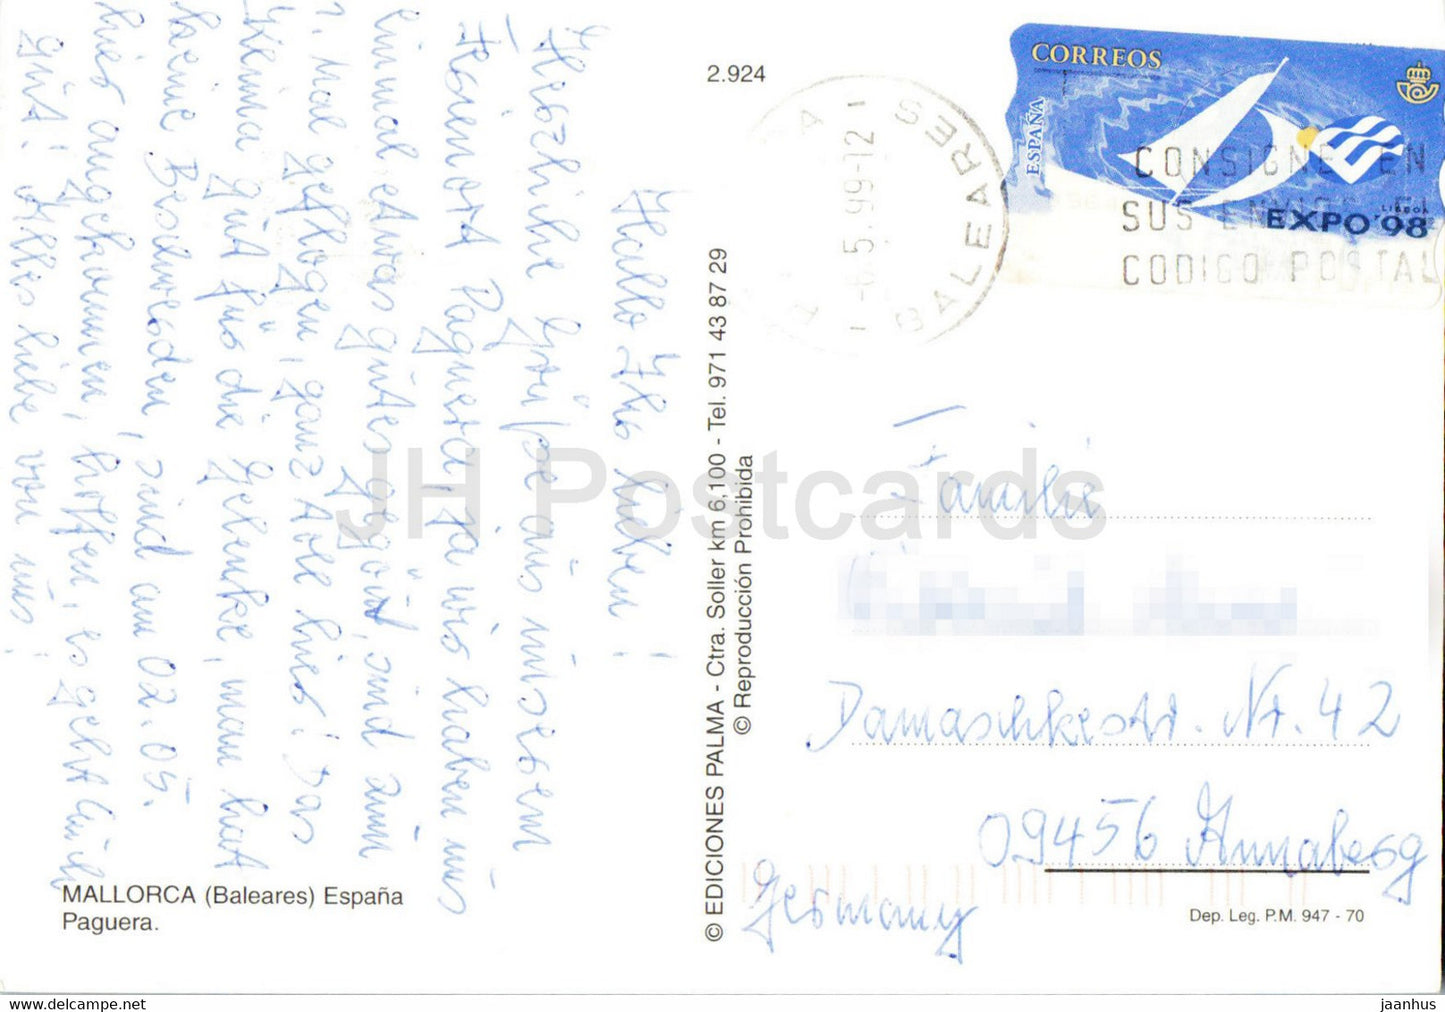 Hallo Ihr lieben!
Herzliche Grüße aus unserem
Urlaubsort Paguera, ja wir haben uns
einmal etwas gutes gegönnt, sind zum
1. Mal geflogen, ganz toll hier! Das
Klima gut für die Gelenke, man hat
keine Beschwerden, sind am 02.05.
hier angekommen, hoffen, es geht Euch
gut! Alles liebe von uns!
MALLORCA (Baleares) España
Paguera.
2.924
© EDICIONES PALMA - Ctra. Soller km 6,100 - Tel. 971 43 87 29
© Reproducción Prohibida
CORREOS
ESPAÑA
LISBOA
EXPO'98
-6.5.99-12
BALEARES
CONSIGNE EN
SUS ENVIOS EL
CODIGO POSTAL
Familie
Damaschkestr. Nr. 42
09456 Annaberg
Germany
Dep. Leg. P.M. 947 - 70
JH Postcards
https://www.hippostcard.com/store/jaanhus
jaanhus